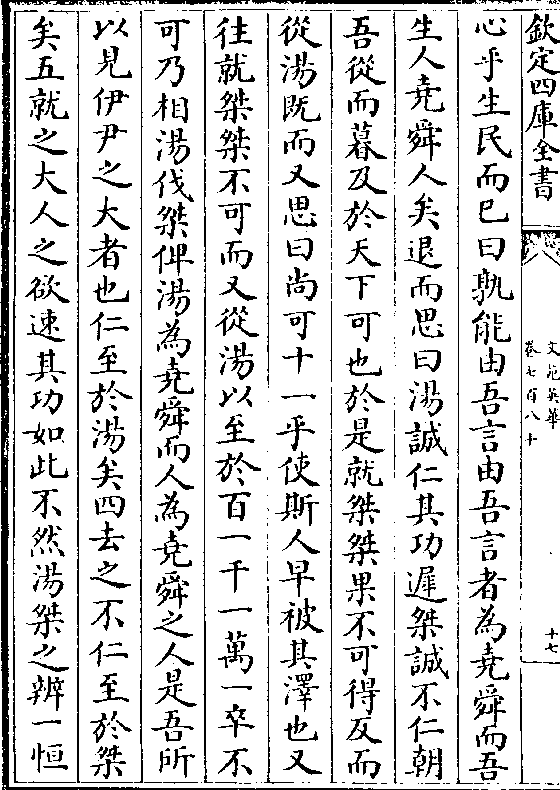 欽定四庫全書
文苑英華
卷七百八十
十七
心乎生民而已曰孰能由吾言由吾言者為堯舜而吾
生人堯舜人矣退而思曰湯誠仁其功遲桀誠不仁朝
吾從而暮及於天下可也於是就桀桀果不可得反而
從湯既而又思曰尚可十一乎使斯人早被其澤也又
往就桀桀不可而又從湯以至於百一千一萬一卒不
可乃相湯伐桀俾湯為堯舜而人為堯舜之人是吾所
以見伊尹之大者也仁至於湯矣四去之不仁至於桀
矣五就之大人之欲速其功如此不然湯桀之辨一恒